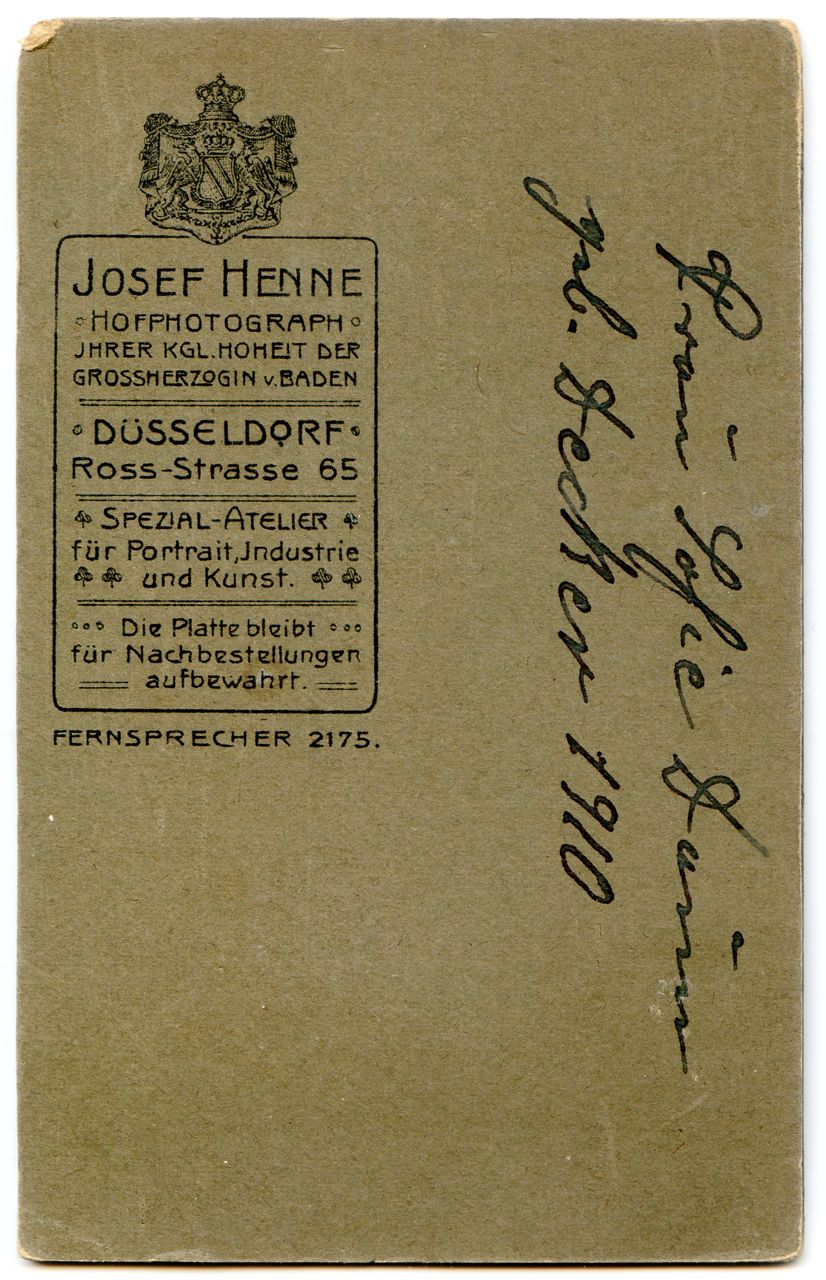 JOSEF HENNE
HOFPHOTOGRAPH
JHRER KGL. HOHEIT DER
GROSSHERZOGIN v. BADEN
DÜSSELDORF
Ross-Strasse 65
SPEZIAL-ATELIER
für Portrait, Jndustrie
und Kunst.
Die Platte bleibt
für Nachbestellungen
aufbewahrt.
FERNSPRECHER 2175.
Frau Sofie
geb. Decker 1910